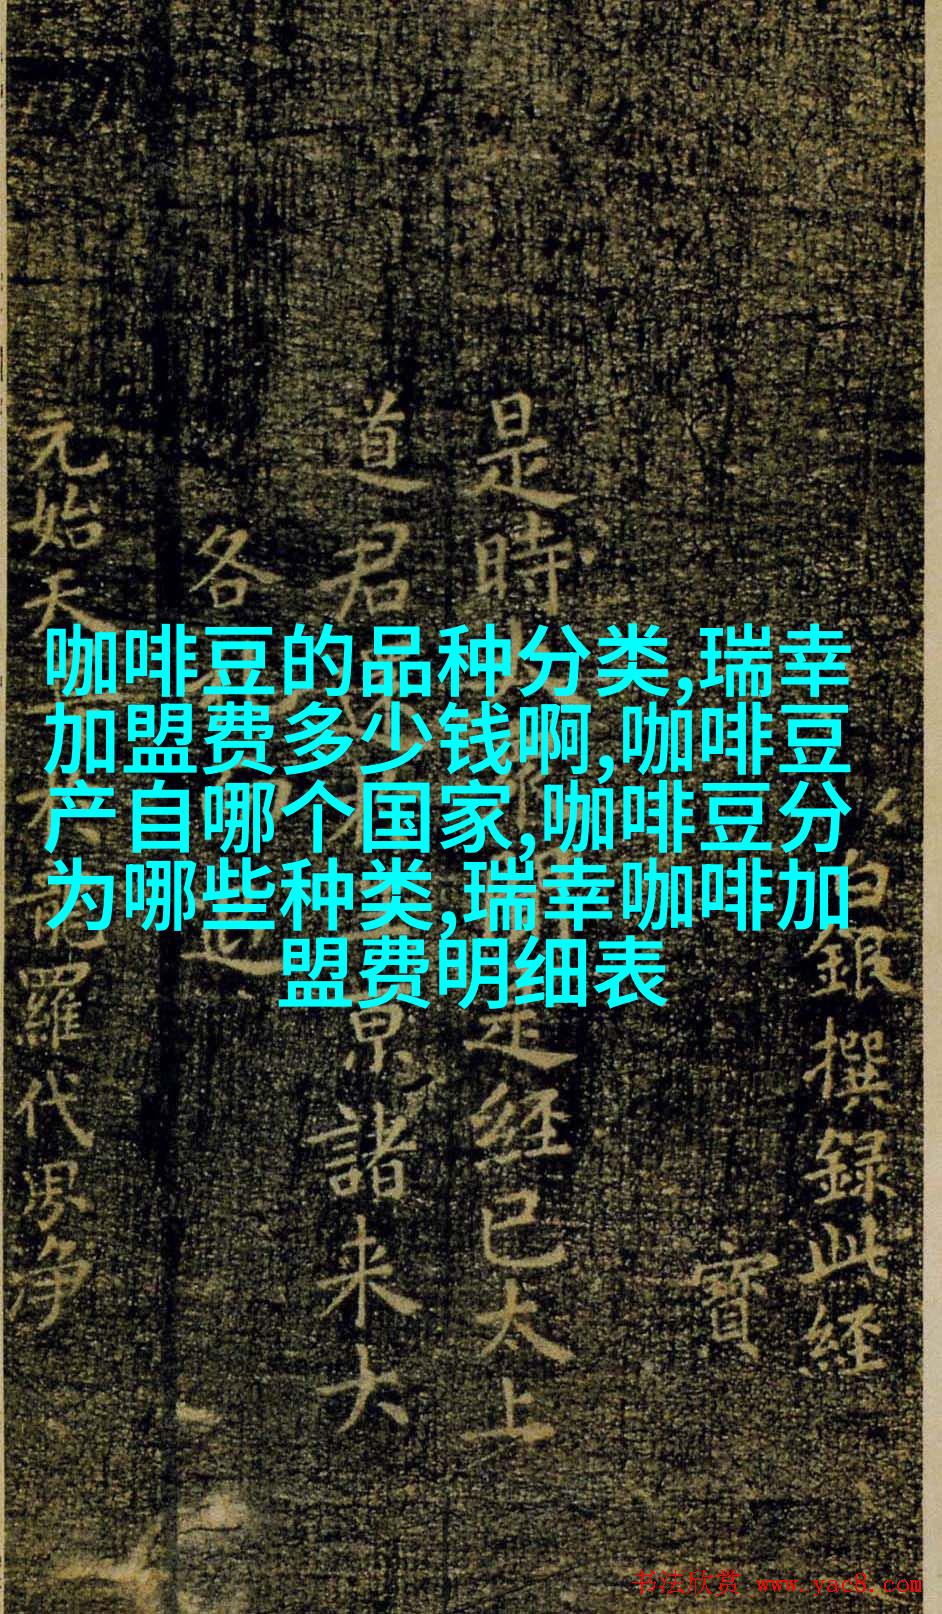 咖啡豆的品种分类,瑞幸
加盟费多少钱啊,咖啡豆
产自哪个国家,咖啡豆分
为哪些种类,瑞幸咖啡加
盟费明细表
白銀撰録此經
寶
是時
是經已太上
道君
京諸来大
各
元始天
羅代界淨
书法欣赏 www.yac8.com